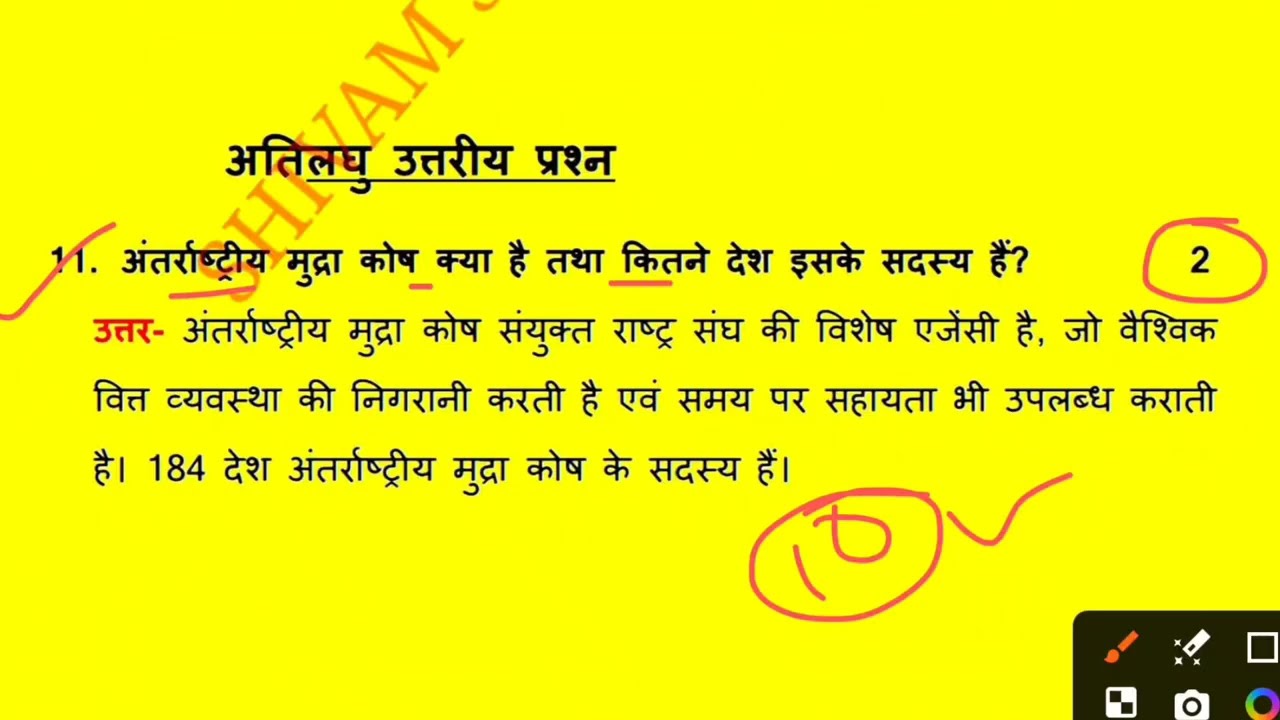 SHIVAM S
अतिलघु उत्तरीय प्रश्न
11. अंतर्राष्ट्रीय मुद्रा कोष क्या है तथा कितने देश इसके सदस्य हैं? 2
उत्तर- अंतर्राष्ट्रीय मुद्रा कोष संयुक्त राष्ट्र संघ की विशेष एजेंसी है, जो वैश्विक
वित्त व्यवस्था की निगरानी करती है एवं समय पर सहायता भी उपलब्ध कराती
है। 184 देश अंतर्राष्ट्रीय मुद्रा कोष के सदस्य हैं।